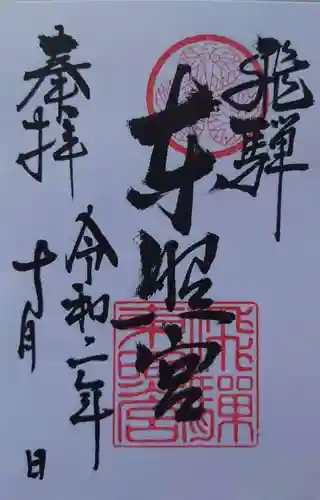 飛騨
東照宮
奉拝
令和二年
十月 日
飛騨東照宮